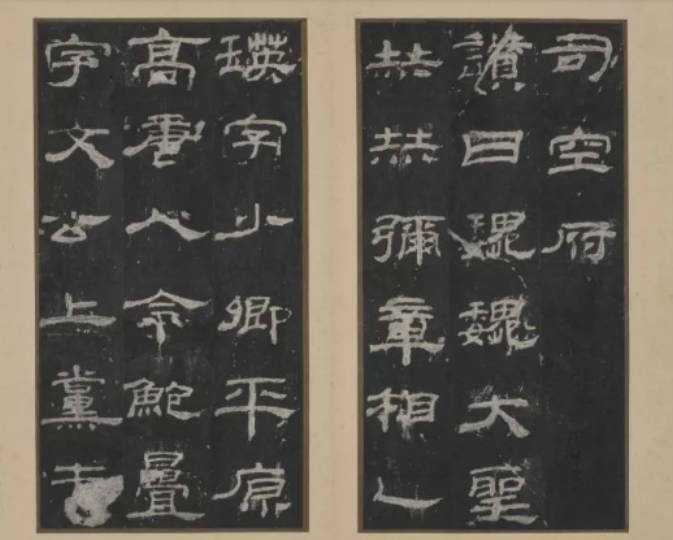 司空府
讃曰巍巍大聖
赫赫彌章相乙
瑛字少卿平原
高唐人令鮑疊
字文公上黨屯